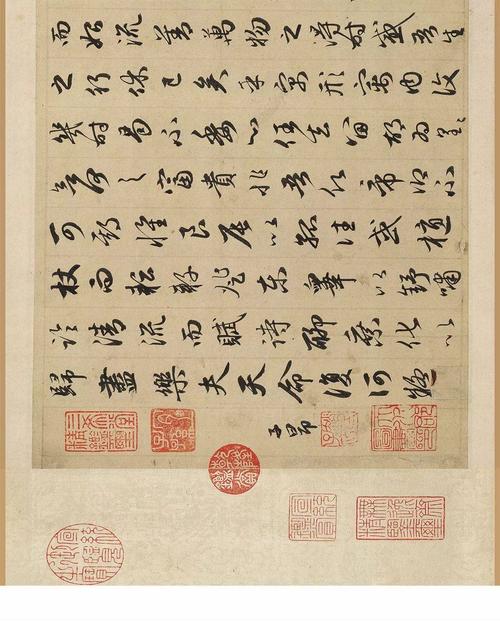 而始流善萬物之得時感吾生
之行休已矣乎寓形宇內復
幾時曷不委心任去留胡為遑遑
欲何之富貴非吾願帝鄉不
可期懷良辰以孤往或植
杖而耘耔登東皋以舒嘯
臨清流而賦詩聊乘化以
歸盡樂夫天命復何疑
子昂